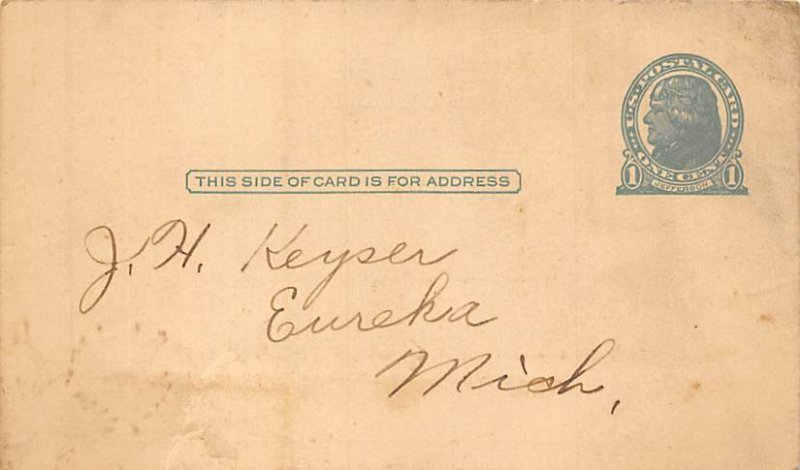 U.S. POSTAL CARD
ONE CENT
1 JEFFERSON 1
THIS SIDE OF CARD IS FOR ADDRESS
J. H. Keyser
Eureka
Mich,